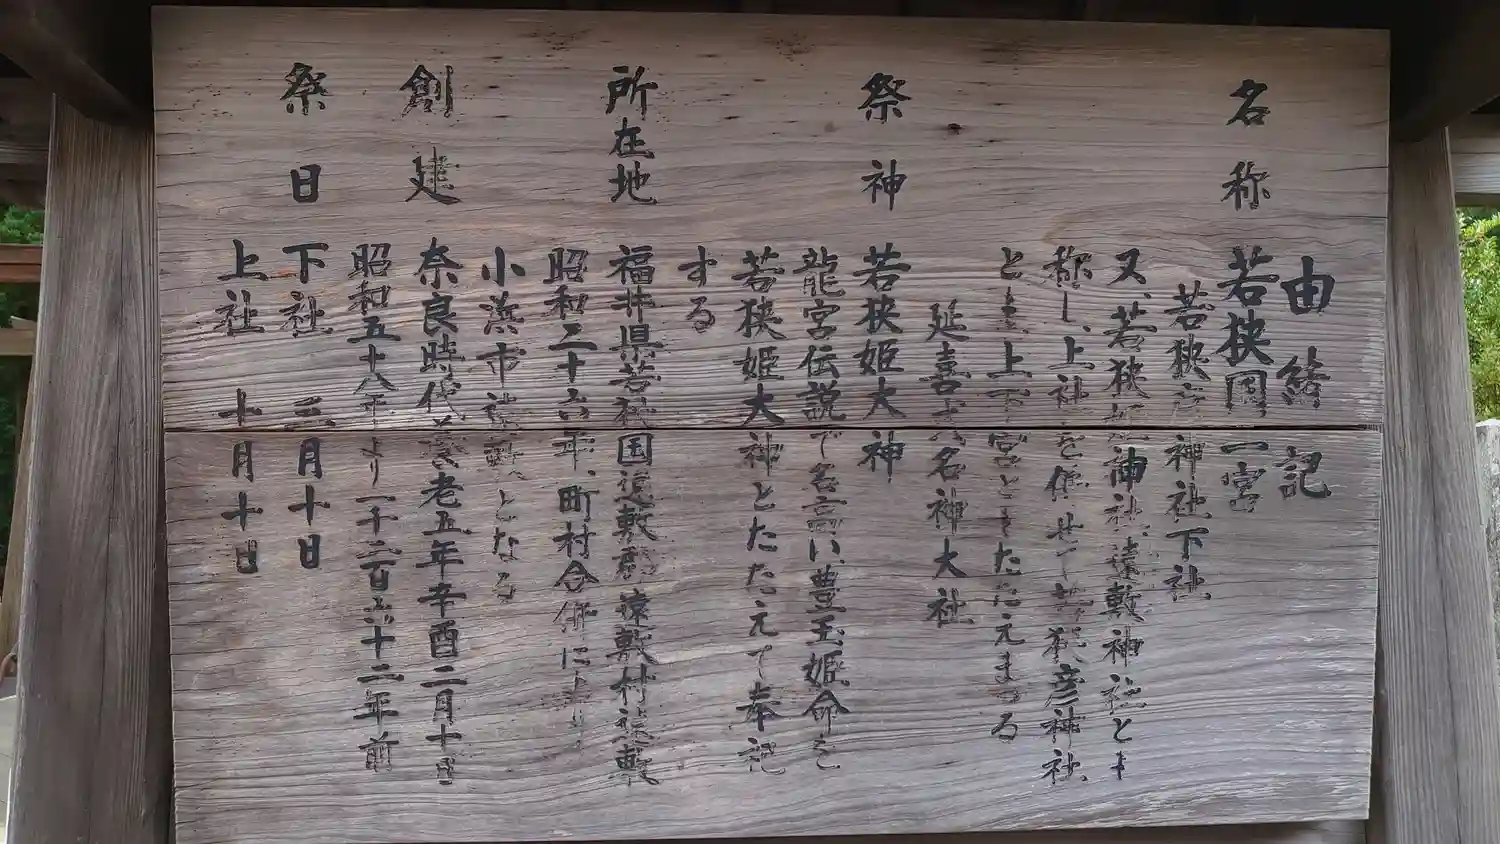 由緒記
名称 若狭国一宮
若狭彦神社下社
又、若狭姫神社遠敷神社とも
称し、上社を併せて若狭彦神社
とも上下宮ともたたえまつる
延喜式名神大社
祭神 若狭姫大神
龍宮伝説で名高い豊玉姫命を
若狭姫大神とたたえて奉祀
する
所在地 福井県若狭国遠敷郡遠敷村遠敷
昭和二十六年、町村合併により
小浜市遠敷となる
創建 奈良時代養老五年辛酉二月十日
昭和五十八年より一千二百六十二年前
祭日 下社 三月十日
上社 十月十日